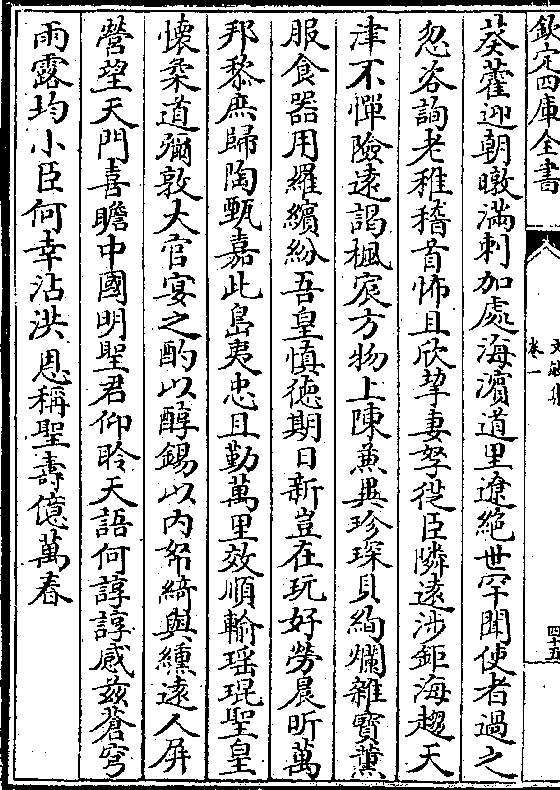 欽定四庫全書
葵藿迎朝暾滿剌加處海濵道里遼絶世罕聞使者過之
忽咨詢老稚稽首怖且欣挈妻孥從臣隣遠涉鉅海趨天
津不憚險遠謁楓宸方物上陳兼異珍琛貝絢爛雜寳薰
服食器用羅繽紛吾皇慎徳期日新豈在玩好勞晨昕萬
邦黎庶歸陶甄嘉此島夷忠且勤萬里效順輸瑶琨聖皇
懷柔道彌敦大官宴之酌以醇錫以内帑綺與纁逺人屏
營望天門喜瞻中國明聖君仰聆天語何諄諄感兹蒼穹
雨露均小臣何幸沾洪恩稱聖壽億萬春
卷一
四十五